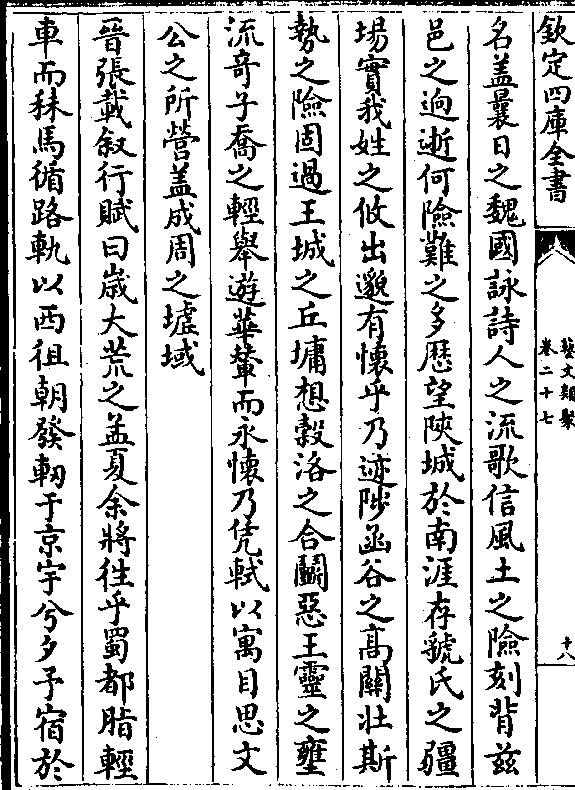 欽定四庫全書
藝文類聚
卷二十七
十八
名蓋曩日之魏國詠詩人之流歌信風土之險刻背兹
邑之逈逝何險難之多歷望陜城於南涯存虢氏之疆
場實我姓之攸出邈有懷乎乃迹陟函谷之高關壯斯
勢之險固過王城之丘墉想榖洛之合鬭惡王靈之壅
流奇子喬之輕舉遊華輦而永懷乃凭軾以寓目思文
公之所營蓋成周之墟域
晉張載叙行賦曰嵗大荒之孟夏余將徃乎蜀都脂輕
車而秣馬循路軌以西徂朝發軔于京宇兮夕予宿於